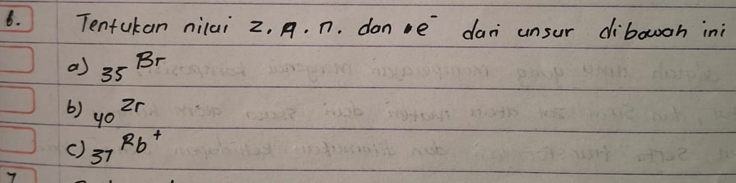 6. Tentukan nilai z, A, n, dan e⁻ dari unsur dibawah ini
a) ₃₅Br
b) ₄₀Zr
c) ₃₇Rb⁺
7